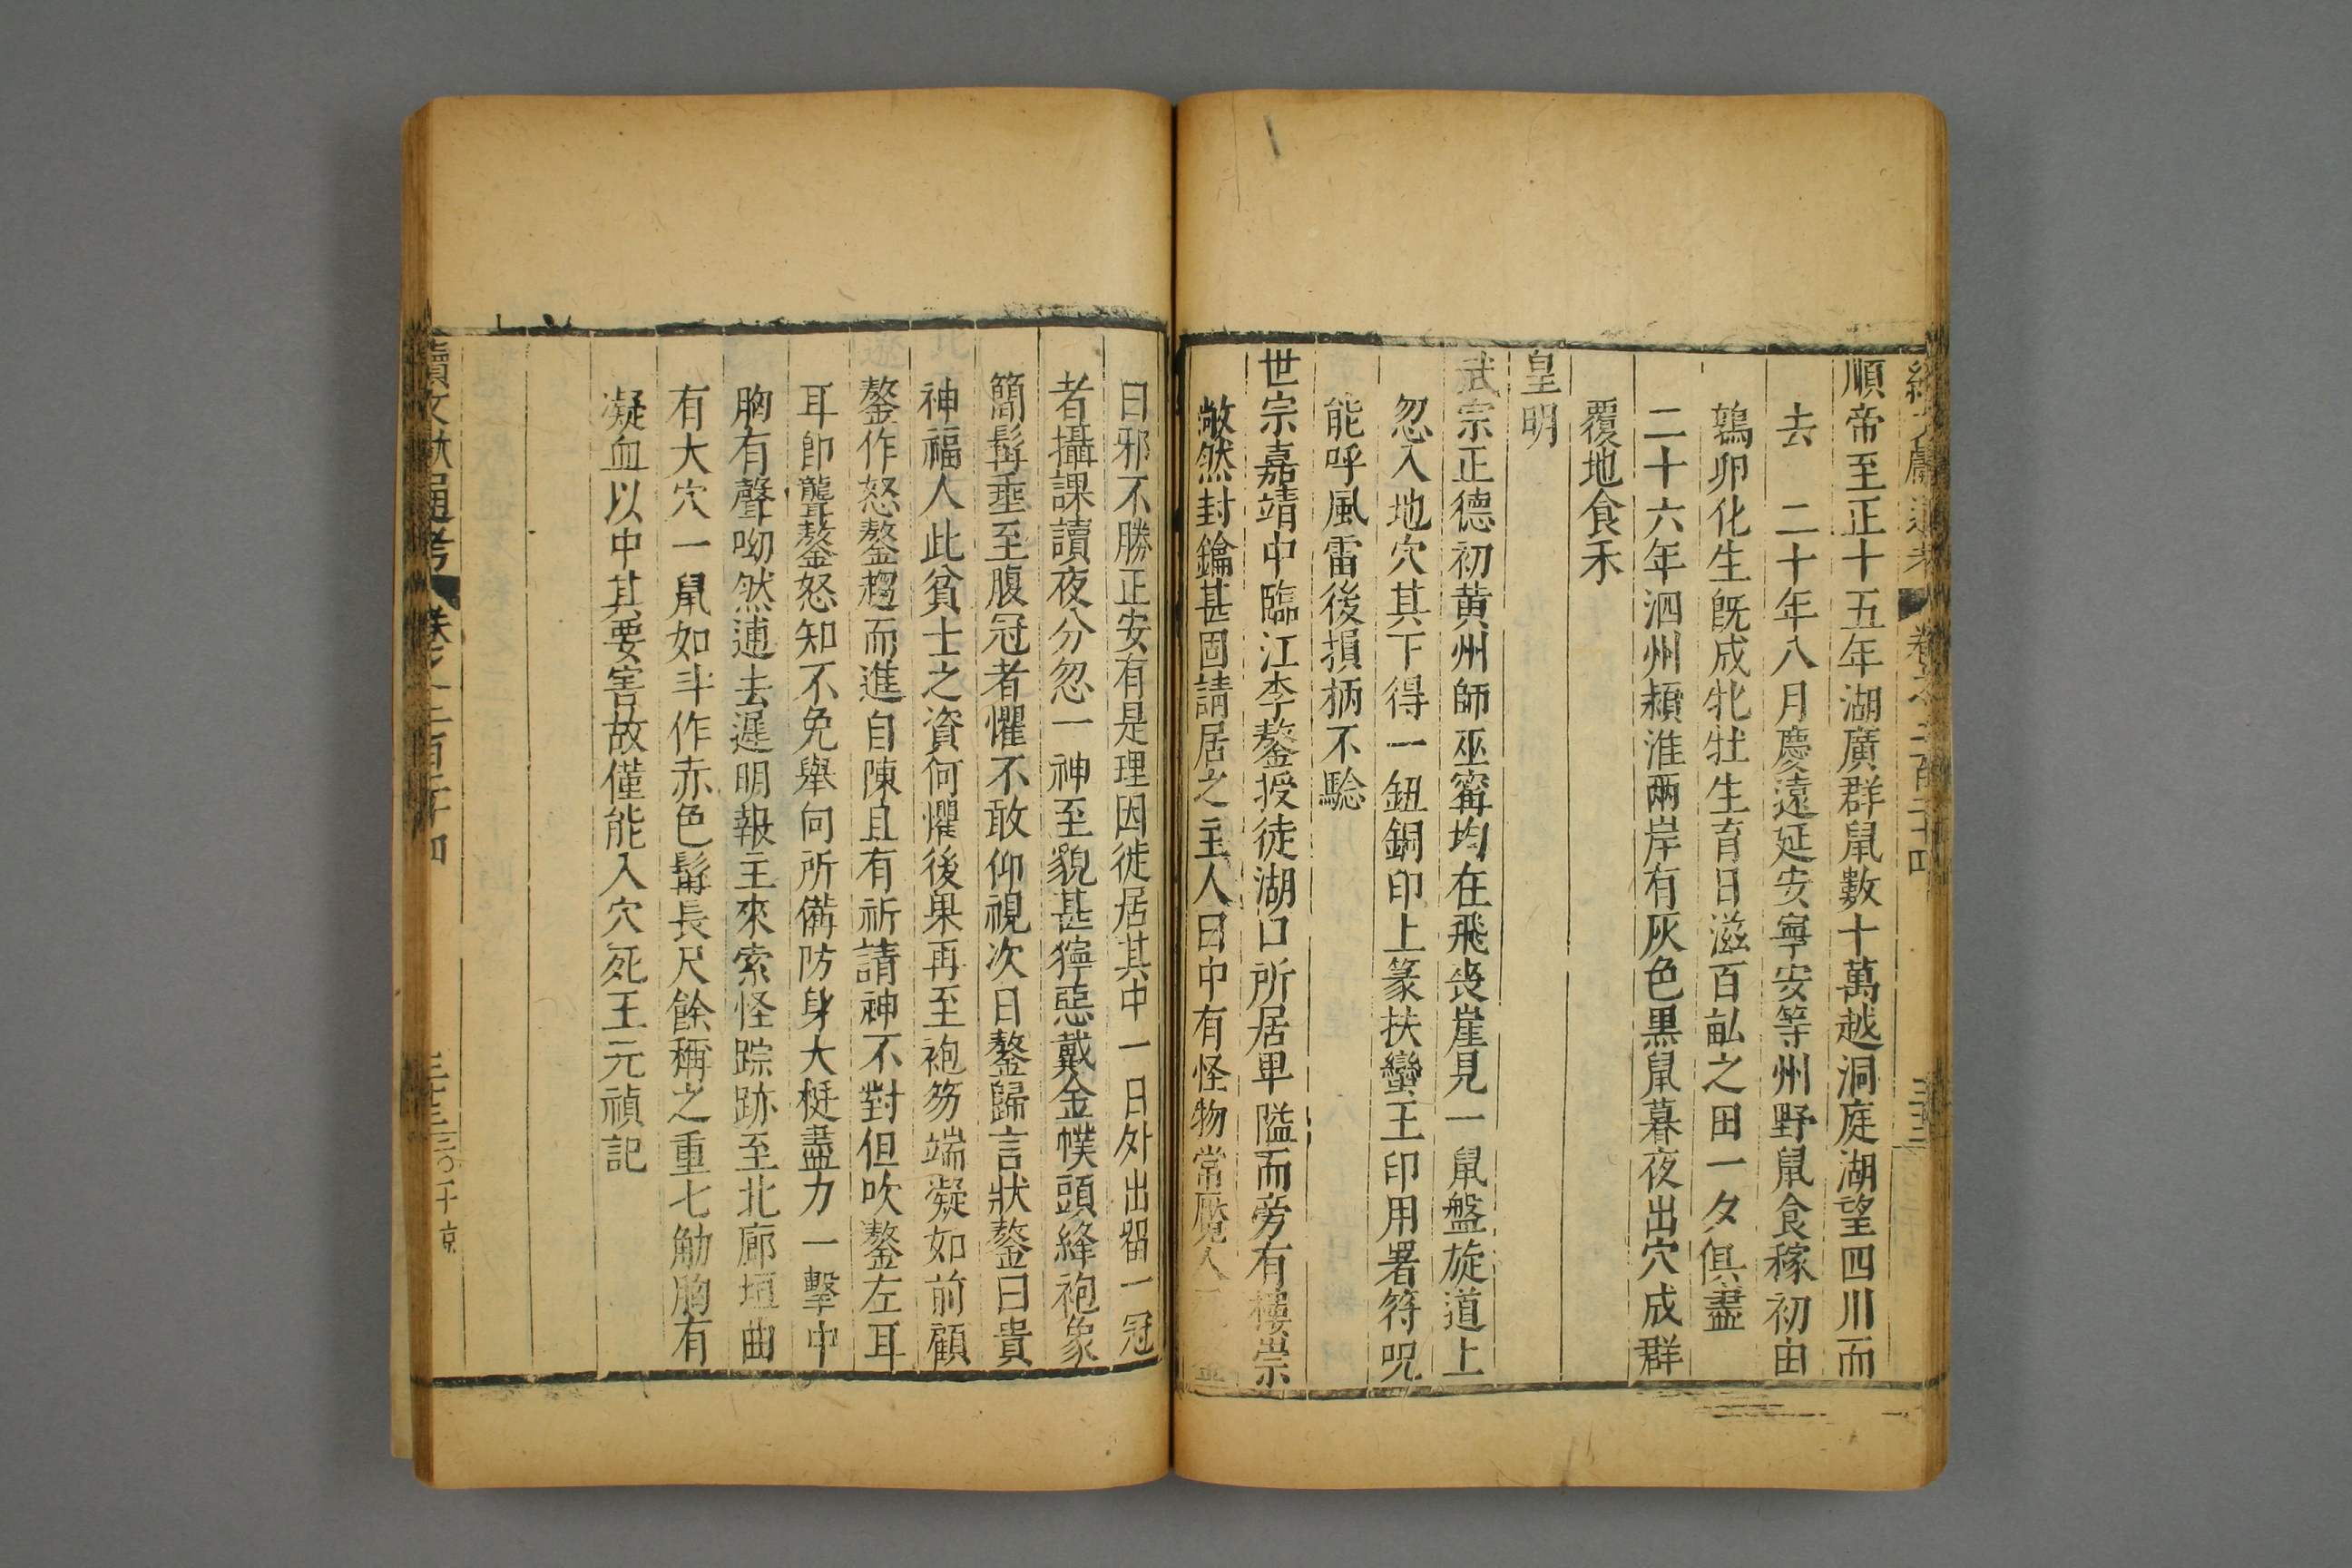 順帝至正十五年湖廣群鼠數十萬越洞庭湖望四川而
去　二十年八月慶遠延安寧安等州野鼠食稼初由
鶉卵化生旣成牝牡生育日滋百畝之田一夕俱盡
二十六年泗州瀕淮兩岸有灰色黒鼠暮夜出穴成群
覆地食禾
皇明
武宗正德初黄州師巫甯均在飛喪崖見一鼠盤旋道上
忽入地穴其下得一鈕銅印上篆扶蠻王印用署符咒
能呼風雷後損柄不驗
世宗嘉靖中臨江李鏊授徒湖口所居卑隘而旁有樓崇
敞然封鑰甚固請居之主人曰中有怪物常魘人
曰邪不勝正安有是理因徙居其中一日外出留一冠
者攝課讀夜分忽一神至貌甚獰惡戴金幞頭絳袍象
簡髯垂至腹冠者懼不敢仰視次日鏊歸言狀鏊曰貴
神福人此貧士之資何懼後果再至袍笏端凝如前顧
鏊作怒鏊趨而進自陳且有祈請神不對但吹鏊左耳
耳卽聾鏊怒知不免舉向所備防身大梃盡力一擊中
胸有聲呦然逋去遲明報主來索怪踪跡至北廊垣曲
有大穴一鼠如斗作赤色髯長尺餘稱之重七觔胸有
凝血以中其要害故僅能入穴死王元禎記
續文獻通考　卷之二百二十四